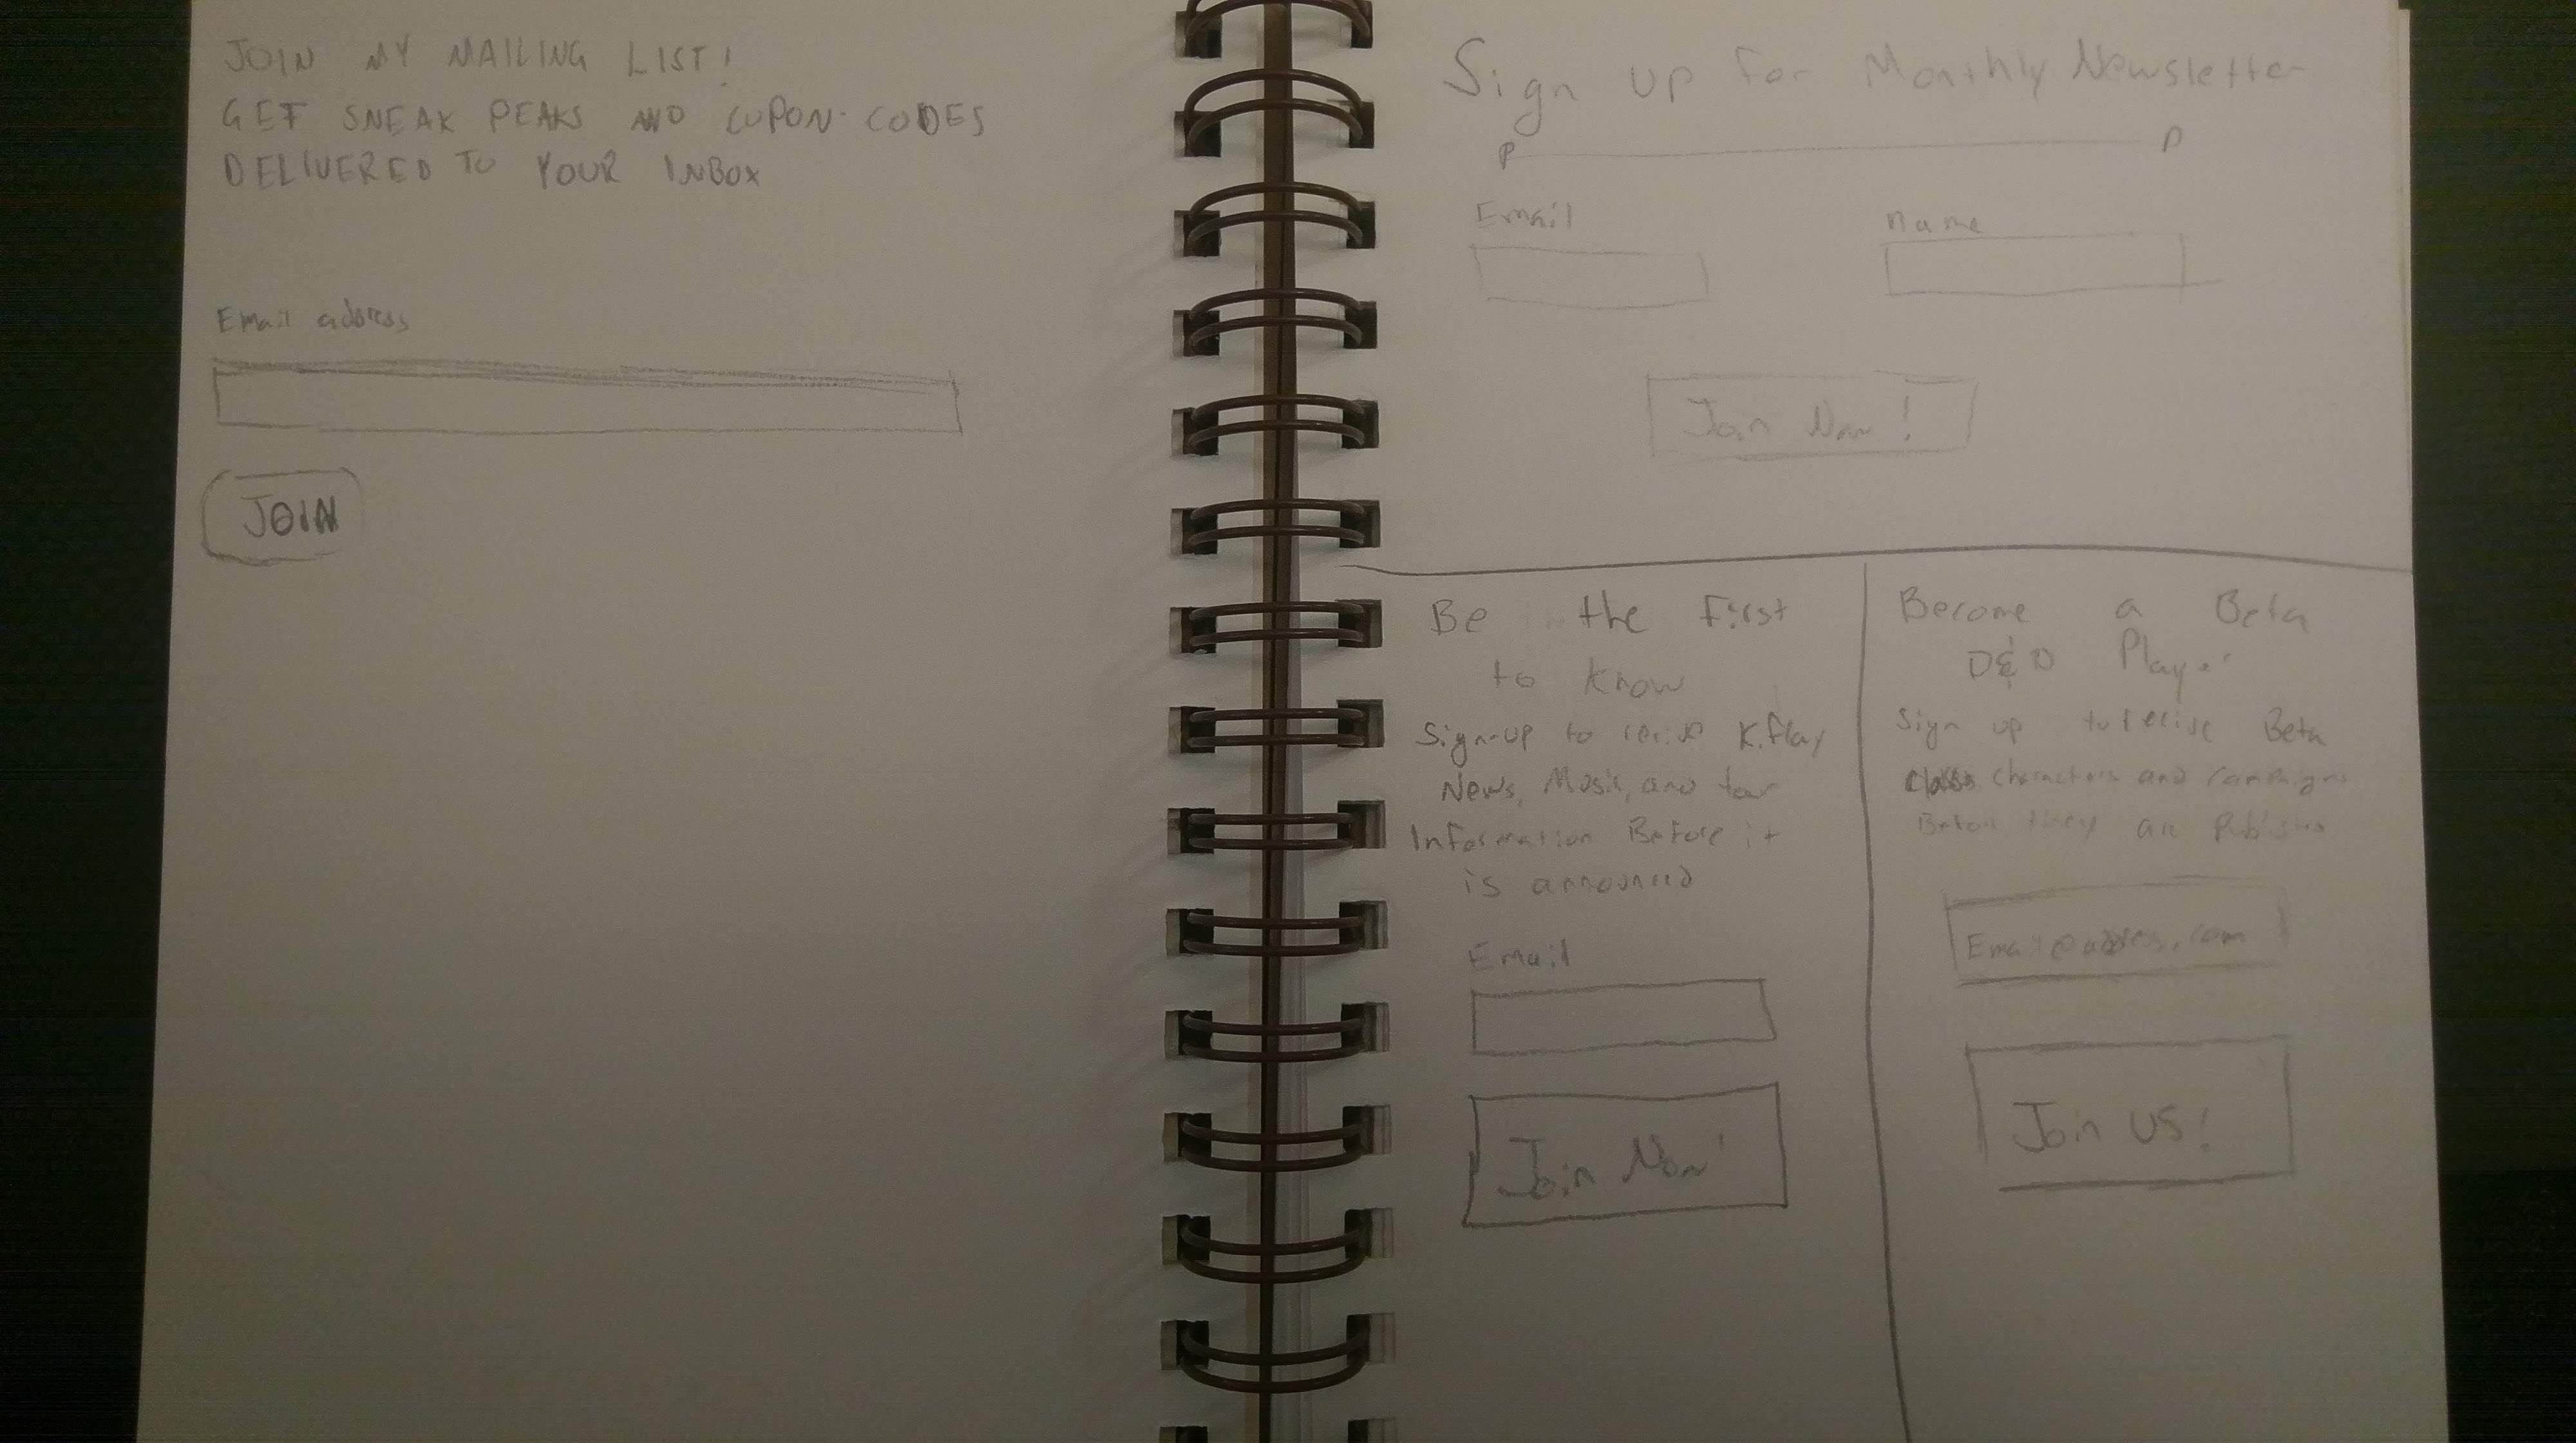 JOIN MY MAILING LIST!
GET SNEAK PEAKS AND CUPON CODES
DELIVERED TO YOUR INBOX
Email address
JOIN
Sign up for Monthly Newsletter
P P
Email name
Join Now!
Be the First
to Know
Sign-up to K.flay
News, Music, and tour
Information Before it
is announced
Email
Join Now!
Become a Beta
D&D Player
Sign up to recive Beta
class characters and campaigns
Before they are
Email@address.com
Join US!